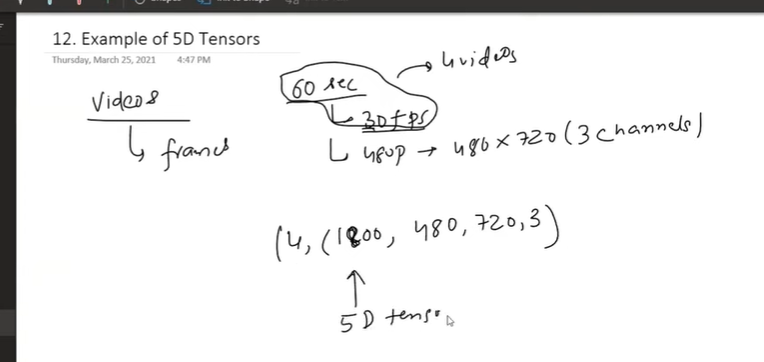 12. Example of 5D Tensors
Thursday, March 25, 2021 4:47 PM
Videos
↳ frames
60 sec → 4 videos
↳ 30 fps
↳ 480p → 480 x 720 (3 channels)
(4, (1800, 480, 720, 3)
↑
5D tenso